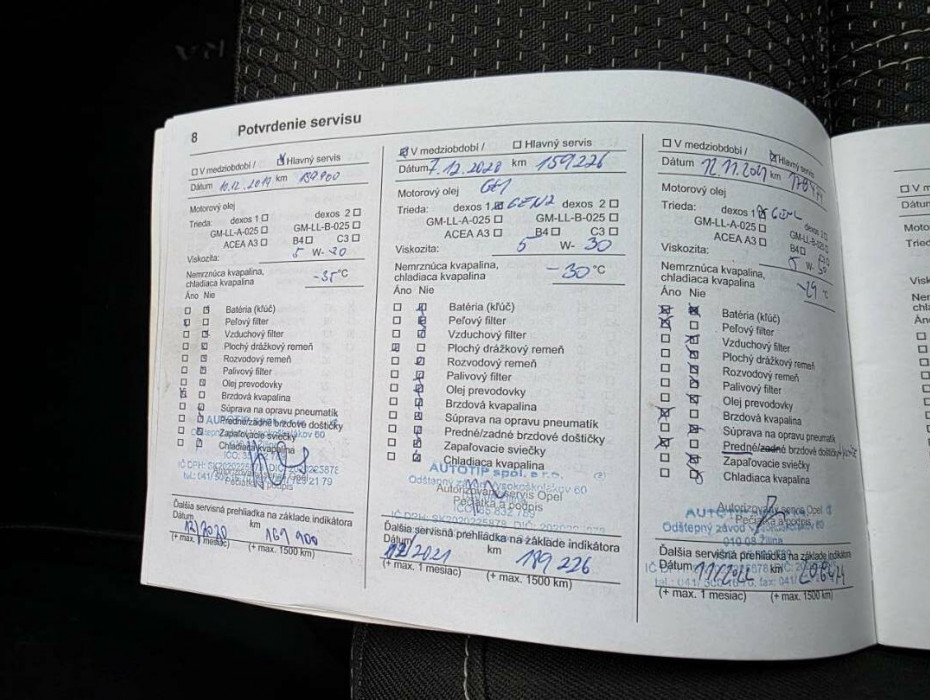 8 Potvrdenie servisu
☐ V medziobdobí / ☑ Hlavný servis
Dátum 10.12.2019 km 139.900
Motorový olej
Trieda: dexos 1 ☐ dexos 2 ☐
GM-LL-A-025 ☐ GM-LL-B-025 ☐
ACEA A3 ☐ B4 ☐ C3 ☐
Viskozita: 5 W-20
Nemrznúca kvapalina,
chladiaca kvapalina -35 °C
Áno Nie
Batéria (kľúč)
Peľový filter
Vzduchový filter
Plochý drážkový remeň
Rozvodový remeň
Palivový filter
Olej prevodovky
Brzdová kvapalina
Súprava na opravu pneumatík
Predné/zadné brzdové doštičky
Zapaľovacie sviečky
Chladiaca kvapalina
Autorizovaný servis Opel
Pečiatka a podpis
Ďalšia servisná prehliadka na základe indikátora
Dátum km
12/2020
(+ max. 1 mesiac) (+ max. 1500 km)
☑ V medziobdobí / ☐ Hlavný servis
Dátum 7.12.2020 km 159226
Motorový olej
Trieda: dexos 1 ☑ GEN2 dexos 2 ☐
GM-LL-A-025 ☐ GM-LL-B-025 ☐
ACEA A3 ☐ B4 ☐ C3 ☐
Viskozita: 5 W- 30
Nemrznúca kvapalina,
chladiaca kvapalina -30 °C
Áno Nie
Batéria (kľúč)
Peľový filter
Vzduchový filter
Plochý drážkový remeň
Rozvodový remeň
Palivový filter
Olej prevodovky
Brzdová kvapalina
Súprava na opravu pneumatík
Predné/zadné brzdové doštičky
Zapaľovacie sviečky
Chladiaca kvapalina
AUTOTIP spol. s r.o.
Odštepný závod Vysokoškolákov 60
Autorizovaný servis Opel
Pečiatka a podpis
Ďalšia servisná prehliadka na základe indikátora
Dátum km
12/2021 189 226
(+ max. 1 mesiac) (+ max. 1500 km)
☐ V medziobdobí / ☑ Hlavný servis
Dátum 12.11.2021 km
Motorový olej
Trieda: dexos 1 ☑ dexos 2 ☐
GM-LL-A-025 ☐ GM-LL-B-025 ☐
ACEA A3 ☐ B4 ☐
Viskozita: 5 W- 30
Nemrznúca kvapalina,
chladiaca kvapalina
Áno Nie
Batéria (kľúč)
Peľový filter
Vzduchový filter
Plochý drážkový remeň
Rozvodový remeň
Palivový filter
Olej prevodovky
Brzdová kvapalina
Súprava na opravu pneumatík
Predné/zadné brzdové doštičky
Zapaľovacie sviečky
Chladiaca kvapalina
Autorizovaný servis Opel
Pečiatka a podpis
010 08 Žilina
Ďalšia servisná prehliadka na základe indikátora
Dátum 11/2022 km
(+ max. 1 mesiac) (+ max. 1500 km)